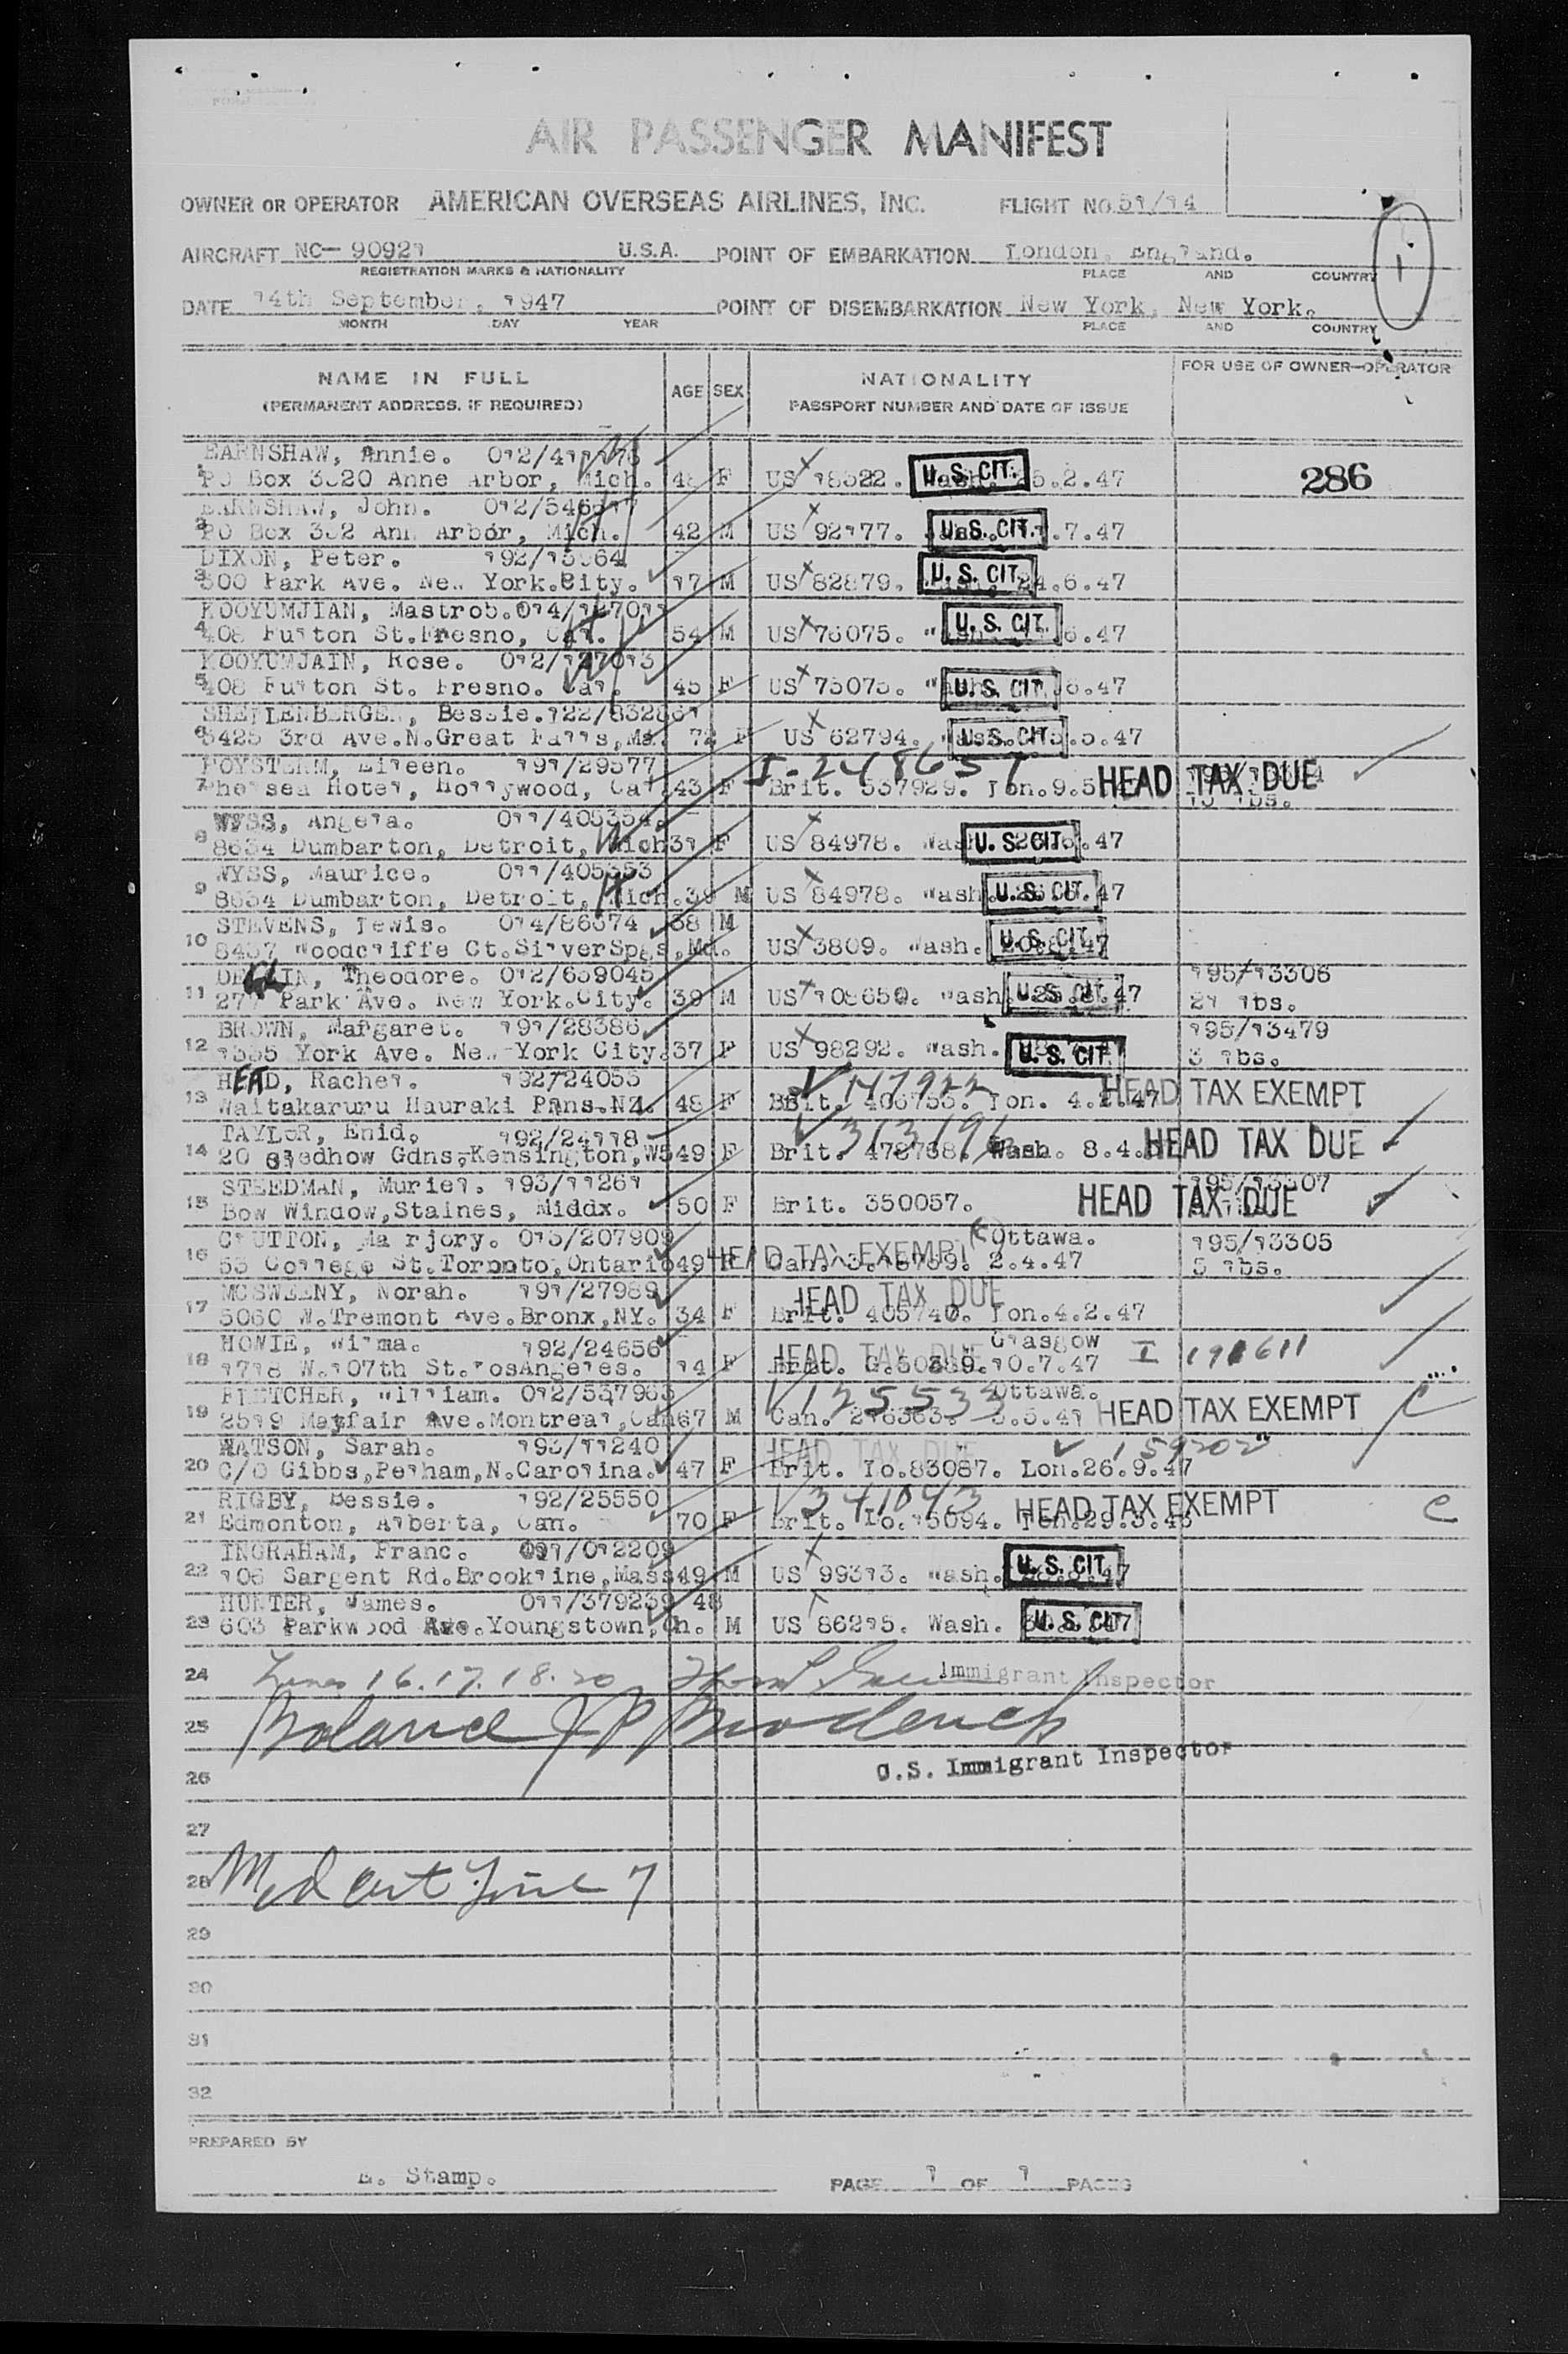 AIR PASSENGER MANIFEST
OWNER OR OPERATOR AMERICAN OVERSEAS AIRLINES, INC. FLIGHT NO. 51/14
AIRCRAFT NC- 90921 U.S.A. POINT OF EMBARKATION London, England.
REGISTRATION MARKS & NATIONALITY PLACE AND COUNTRY
DATE 14th September, 1947 POINT OF DISEMBARKATION New York, New York.
MONTH DAY YEAR PLACE AND COUNTRY
NAME IN FULL
(PERMANENT ADDRESS, IF REQUIRED)
AGE SEX
NATIONALITY
PASSPORT NUMBER AND DATE OF ISSUE
FOR USE OF OWNER-OPERATOR
EARNSHAW, Annie.
PO Box 3020 Anne Arbor, Mich. F US 18322. U.S. CIT. 2.47 286
EARNSHAW, John.
2 PO Box 302 Ann Arbor, Mich. 42 M US 92177. U.S. CIT. 7.47
DIXON, Peter.
3 500 Park Ave. New York.City. 17 M US 82879. U.S. CIT. 24.6.47
KOOYUMJIAN, Mastrob.
4 408 Fulton St.Fresno, Cal. 54 M US 76075. U.S. CIT. 6.47
KOOYUMJAIN, Rose. 012/127013
5 408 Fulton St. Fresno. Cal. 45 F US 75075. U.S. CIT. 6.47
SHELLENBERGER, Bessie. 122/832861
6 3425 3rd Ave.N.Great Falls, 72 F US 62794. U.S. CIT. 5.47
Eileen. 191/29577 I-248657
7 Chelsea Hotel, Hollywood, Cal. 43 F Brit. 537929. Lon.9.5 HEAD TAX DUE
WYSS, Angela. 011/405354
8 8634 Dumbarton, Detroit, Mich 31 F US 84978. Wash U.S. CIT. .47
WYSS, Maurice. 011/405353
9 8634 Dumbarton, Detroit, Mich. 39 M US 84978. Wash. U.S. CIT. 47
STEVENS, Lewis. 014/86374 38 M
10 8437 Woodcliffe Ct.SilverSpgs,Md. US 3809. Wash. U.S. CIT. 47
Theodore. 012/639045 195/13306
11 277 Park Ave. New York.City. 39 M US 108650. Wash U.S. CIT. 47 21 lbs.
BROWN, Margaret. 191/28386 195/13479
12 1365 York Ave. New York City. 37 F US 98292. Wash. U.S. CIT. 3 lbs.
HEAD, Rachel. 192/24053 147922
13 Waitakaruru Hauraki Plns.NZ. 48 F Brit. 406755. Lon. HEAD TAX EXEMPT
TAYLOR, Enid. 192/24118 313196
14 20 Gledhow Gdns,Kensington,W5 49 F Brit. 478768. Wash. 8.4. HEAD TAX DUE
STEEDMAN, Muriel. 193/11261 195/13307
15 Bow Window,Staines, Middx. 50 F Brit. 350057. HEAD TAX DUE
CLUTTON, Marjory. 015/207909 Ottawa. 195/13305
16 53 College St.Toronto,Ontario 49 F HEAD TAX EXEMPT Can. 2.4.47 5 lbs.
MCSWEENY, Norah. 191/27989 HEAD TAX DUE
17 5060 W.Tremont Ave.Bronx,NY. 34 F Brit. 405740. Lon.4.2.47
HOWIE, Wilma. 192/24656 Glasgow
18 1718 W.107th St.LosAngeles. 14 F HEAD TAX DUE Brit. 10.7.47 I 191611
FLETCHER, William. 012/537963 125533 Ottawa.
19 2519 Mayfair Ave.Montreal,Can 67 M Can. HEAD TAX EXEMPT C
WATSON, Sarah. 193/11240 HEAD TAX DUE 159202
20 C/O Gibbs,Pelham,N.Carolina. 47 F Brit. Lo.83087. Lon.26.9.47
RIGBY, Bessie. 192/25550 341043
21 Edmonton, Alberta, Can. 70 F Brit. Lo.15094. HEAD TAX EXEMPT C
INGRAHAM, Franc. 011/012209
22 106 Sargent Rd.Brookline,Mass 49 M US 99313. Wash. U.S. CIT. 47
HUNTER, James. 011/379239 48
23 603 Parkwood Ave.Youngstown,Oh. M US 86215. Wash. U.S. CIT.
24 Lines 16.17.18.20 Immigrant Inspector
25 Balance J P Broderick
26 U.S. Immigrant Inspector
27
28 Med Cert Line 7
29
30
31
32
PREPARED BY
E. Stamp. PAGE 1 OF 1 PAGES